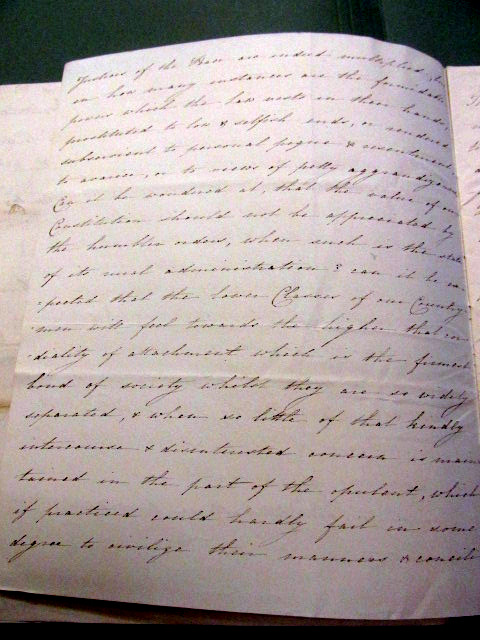 Justices of the Peace are indeed multiplied,
in how many instances are the formidable
powers which the law vests in their hands
prostituted to low & selfish ends, or rendered
subservient to personal pique & resentment
to avarice, or to views of petty aggrandizem
Can it be wondered at, that the value of our
Constitution should not be appreciated by
the humbler orders, when such is the state
of its rural administration? can it be ex
-pected that the lower Classes of our Country
men will feel towards the higher that cor
diality of attachment which is the firmest
bond of society whilst they are so widely
separated, & when so little of that kindly
intercourse & disinterested concern is main
tained on the part of the opulent, which
if practiced could hardly fail in some
degree to civilize their manners & concili